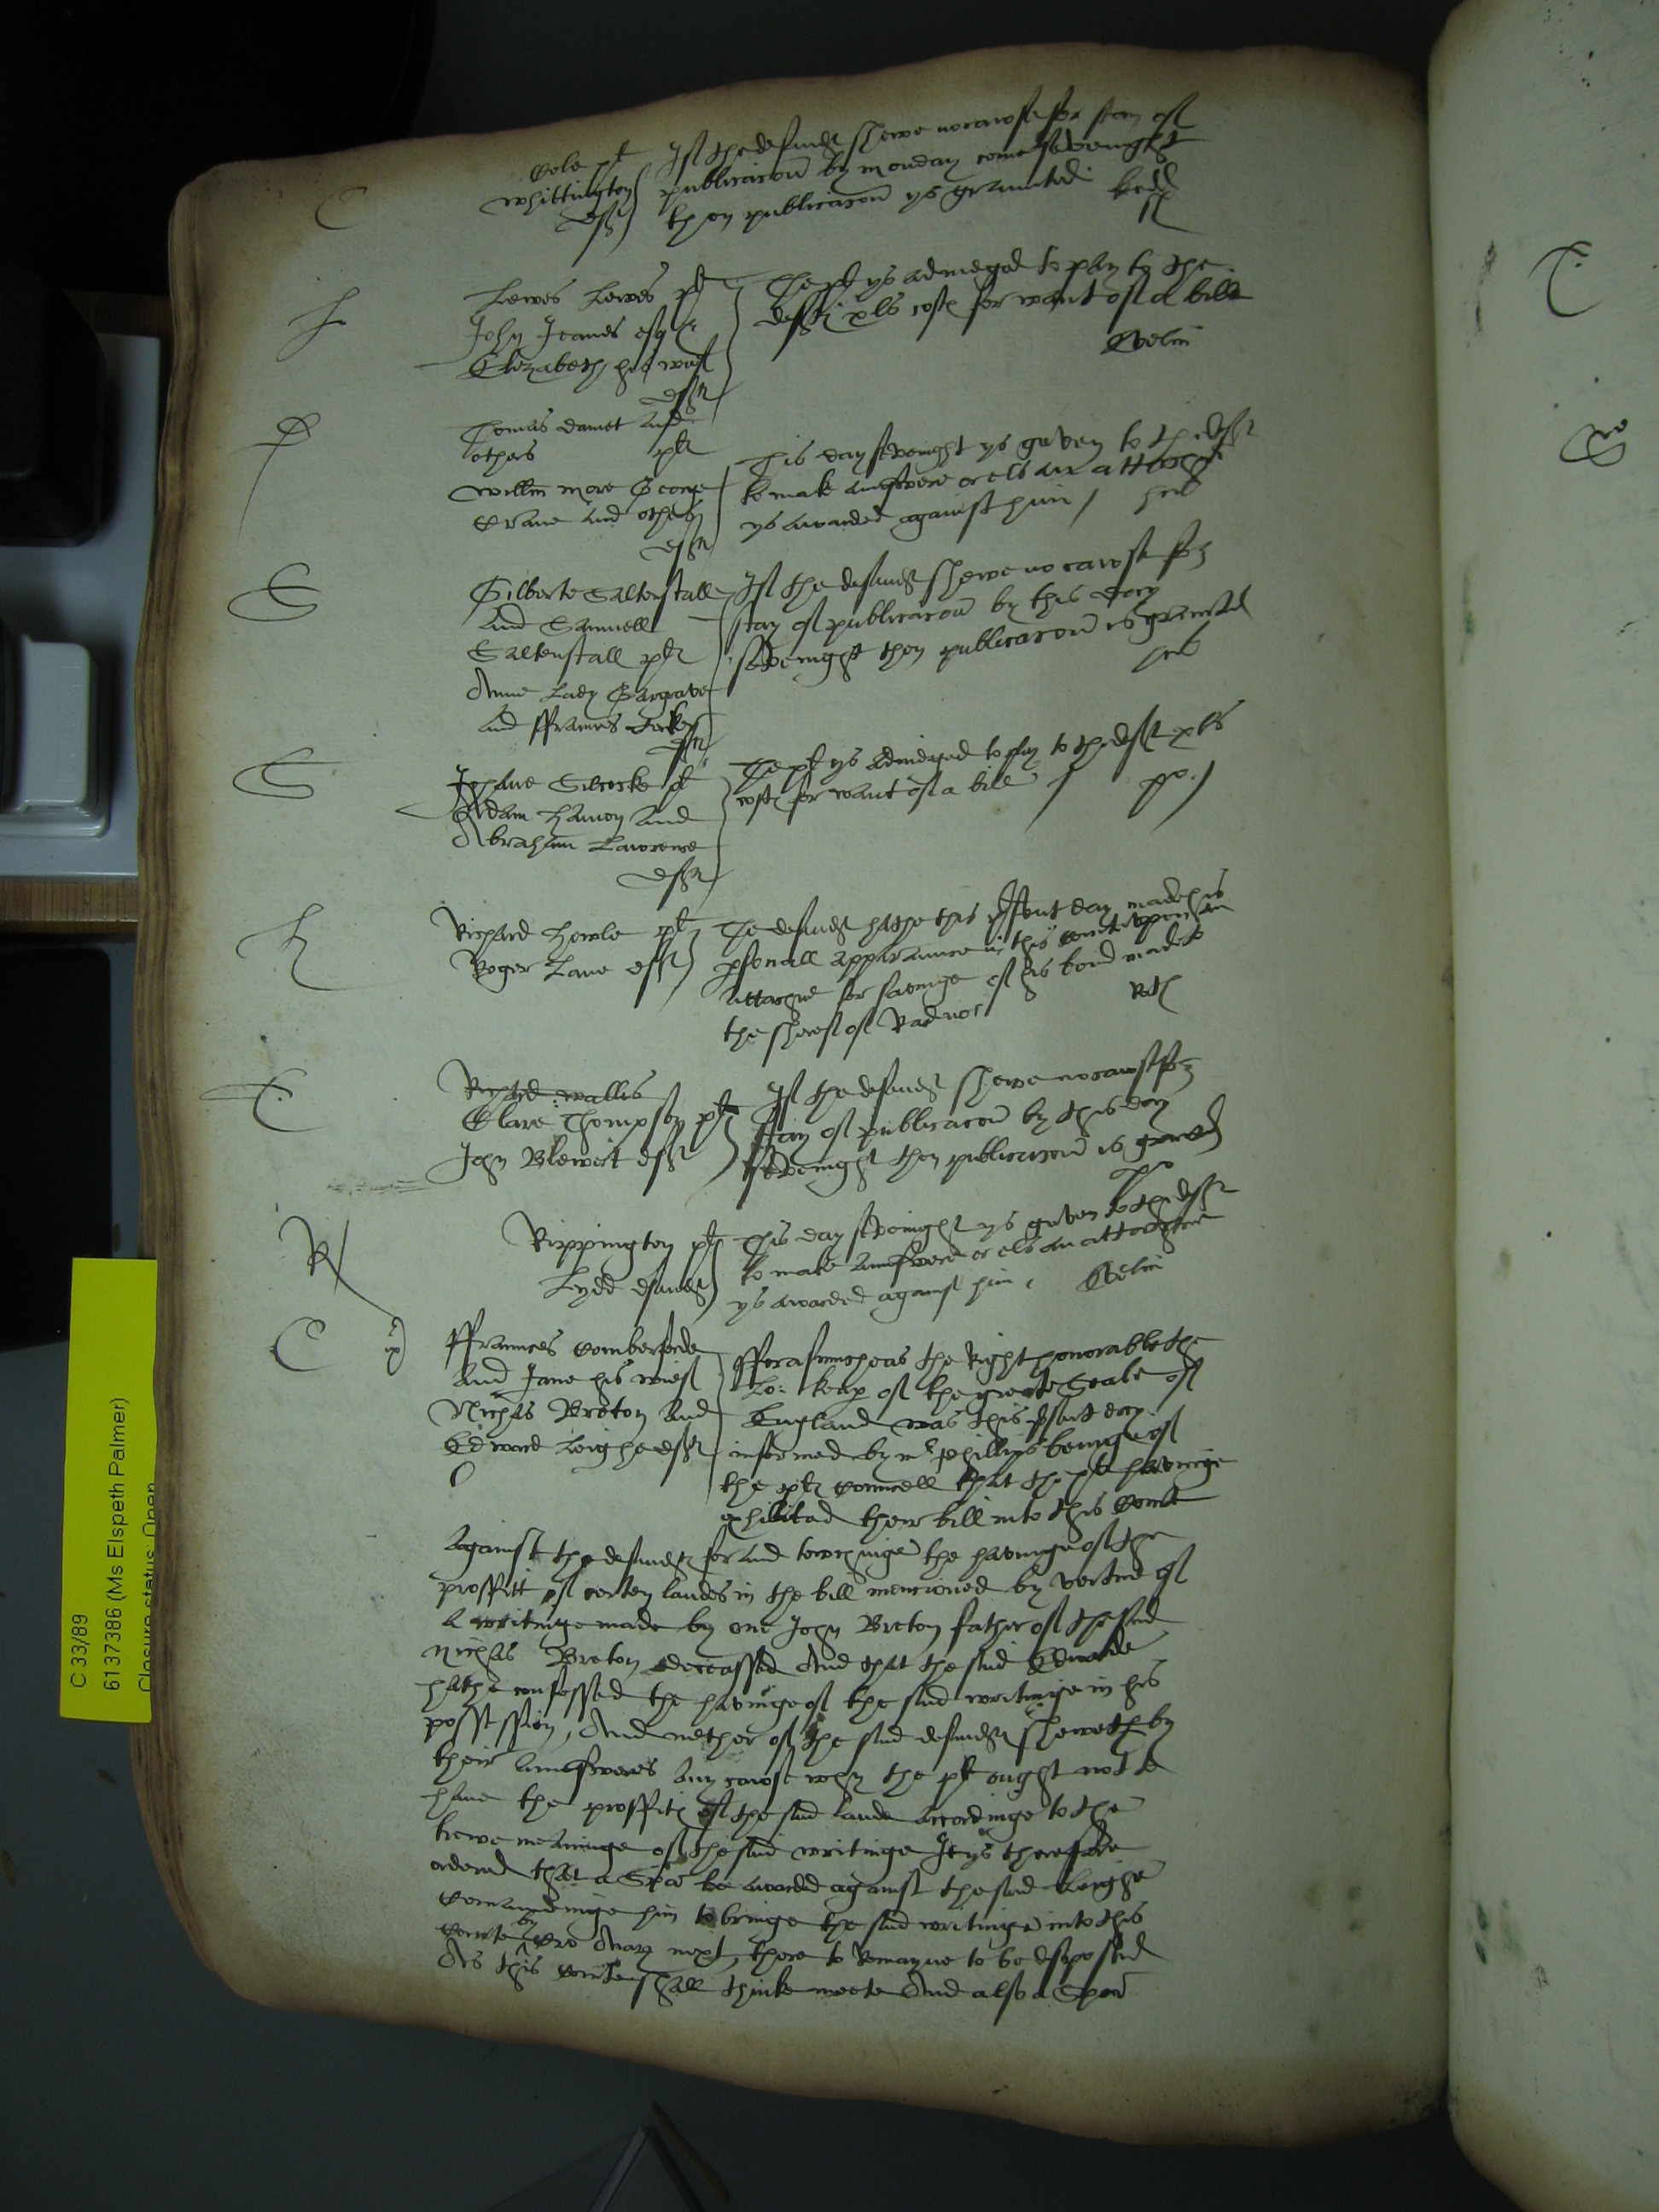 Cole plt
Whittington
deft
If the defendt shewe no cause for stay of
publicacon by Monday come sevenight
then publicacon ys graunted
C
L
Lewes Lewes plt
John Jeames esqr
Elizabeth his wief
defts
The plt ys adiudged to pay to the
defts xls costs for want of a bill
Evelin
Thomas Damet and
others plts
Willm More George
Crane and others
defts
This day sevenight ys geven to the deft
to make aunswere or els an attachmt
ys awarded against him
S
Gilberte Saltenstall
and Samuell
Saltenstall plts
Anne Lady Gargrave
and ffraunces
defts
If the defendt shewe no cawse for
stay of publicacon by this day
sevenight then publicacon is graunted
S
Johane plt
Adam Hamon and
Abraham Lawrence
defts
The plt ys adiudged to pay to the deft xls
costs for want of a bill
po.
H
Richard Howle plt
Roger Lane deft
The defendt hathe this psent day made his
psonall apparaunce in this Courte upon an
attachmt for savinge of his bond made to
the Sheref of Radnor
T
Richard Wallis
Clare Thompson plt
John Blewet deft
If the defendt shewe no cause for
stay of publicacon by this day
sevenight then publicacon is graunted
po
R
Rippington plt
Lydd defendt
This day sevenight ys geven to the deft
to make aunswere or els an attachmt
ys awarded against him
Evelin
C
ffraunces Comberforde
and Jane his wief
Nichās Breton and
Edward Leighe defts
fforasmuche as the Right honorable the
Lo: keap of the greate Seale of
England was this psent day
informed by mr Phillips beinge of
the plts Councell that the plts havinge
exhibited their bill into this Courte
against the defendts for and towchinge the havinge of the
proffitts of certen landes in the bill mencioned by vertue of
a writinge made by one John Breton father of the said
Nichās Breton deceassed And that the said Edwarde
hathe confessed the havinge of the said writinge in his
possession, And nether of the said defendts sheweth by
their aunsweres any cawse why the plts ought not to
have the proffitts of the said lands accordinge to the
trewe meaninge of the said writinge It ys therefore
ordered that a Spa be awarded against the said Leighe
Comaundinge him to bringe the said writinge into this
Courte by Cro Aīarū next, there to Remayne to be disposed
As this Courte shall thinke meete And also a Spena
C 33/89
6137386 (Ms Elspeth Palmer)
Closure status: Open